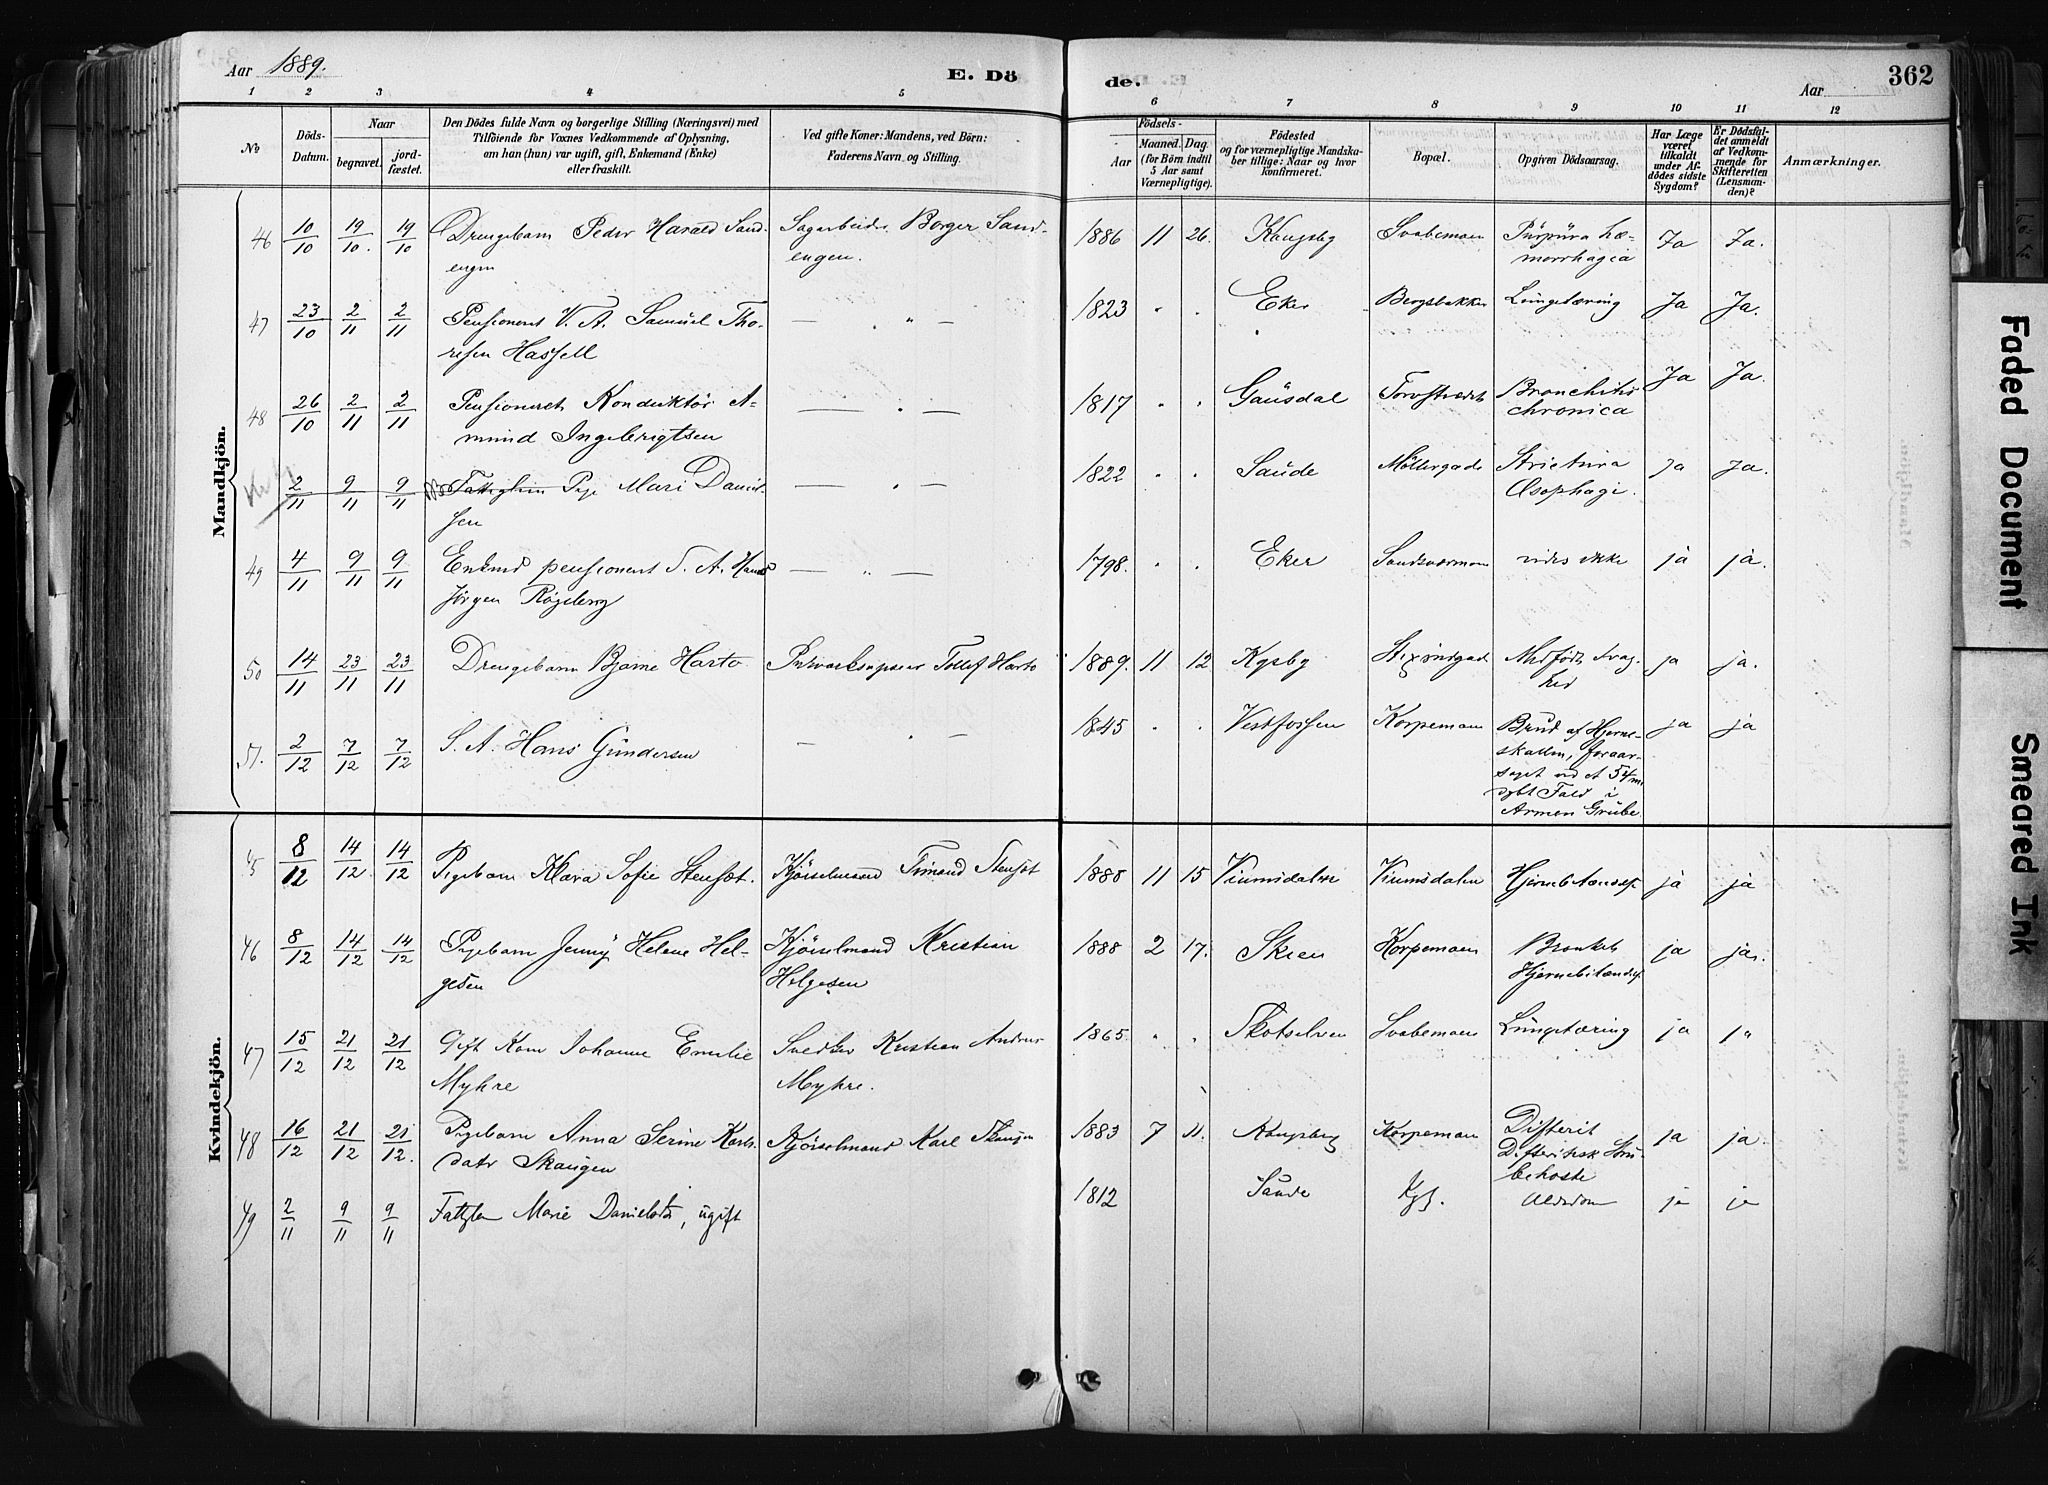 Aar 1889.
E. Dö
de.
Aar
362
1 2 3 4 5 6 7 8 9 10 11 12
No
Döds-
Datum.
Naar
begravet.
jord-
fæstet.
Den Dödes fulde Navn og borgerlige Stilling (Næringsvei) med
Tilföiende for Voxnes Vedkommende af Oplysning,
om han (hun) var ugift, gift, Enkemand (Enke)
eller fraskilt.
Ved gifte Koner: Mandens, ved Börn:
Faderens Navn og Stilling.
Födsels-
Aar
Maaned. Dag.
(for Börn indtil
5 Aar samt
Værnepligtige).
Födested
og for værnepligtige Mandska-
ber tillige: Naar og hvor
konfirmeret.
Bopæl.
Opgiven Dödsaarsag.
Har Læge
været
tilkaldt
under Af-
dödes sidste
Sygdom?
Er Dödsfal-
det anmeldt
af Vedkom-
mende for
Skifteretten
(Lensman-
den)?
Anmærkninger.
Mandkjön.
46 10/10 19/10. 19/10 Drengebarn Peder Harald Sand- Sagarbeider Borger Sand- 1886 11 26. Kongsbg Svabemoen Purpura hæ- Ja Ja.
engen engen. morrhagia
47 23/10 2/11 2/11 Pensioneret V. A. Samuel Tho- — " — 1823 " " Eker Bergsbakken Lungetæring Ja Ja.
resen Hassell
48 26/10 2/11 2/11 Pensioneret Konduktör A- — " — 1817 " " Gausdal Torvstrædet Bronchitis Ja Ja.
mund Ingebrigtsen chronica
2/11 9/11 9/11 Fattiglem Pige Mari Daniel- — " — 1822 " " Saude Möllergade Strictura Ja Ja.
sen Øsophagi.
49 4/11 9/11 9/11 Enkmd pensioneret S. A. Hans — " — 1798. " " Eker Sandsværmoen vides ikke ja ja.
Jørgen Røgeberg
50 14/11 23/11 23/11 Drengebarn Bjarne Harto Tollef Harto 1889. 11 12 Kgsbg Medfödt Svag- ja ja.
hed
51. 2/12 7/12 7/12 S. A. Hans Gundersen — " — 1845 " " Vestfossen Korpemoen Brud af Hjerne- ja ja
skallen, foraar-
saget ved et 54 m
dybt Fald i
Armen Grube.
Kvindekjön.
45 8/12 14/12. 14/12 Pigebarn Klara Sofie Stensæt. Kjörselmand Stensæt 1888 11 15 Viumsdalen Viumsdalen Hjernebetændelse ja ja
46 8/12 14/12 14/12 Pigebarn Jenny Helene Hel- Kjörselmand Kristian 1888 2 17. Skien Korpemoen Bronkit ja ja.
gesen Helgesen Hjernebetændelse
47 15/12 21/12 21/12 Gift Kone Johanne Emelie Kristian Andreas 1865. " " Skotselven Svabemoen Lungetæring ja "
Myhre Myhre.
48 16/12 21/12 21/12. Pigebarn Anna Serine Karls- Kjörselmand Karl Skaugen 1883 7 11. Kongsberg Korpemoen Difterit ja ja.
datr Skaugen Difteritisk Stru-
behoste
49 2/11 9/11 9/11 Fattglm Marie Danielsdtr, ugift 1812 Saude Kgb. Alderdom ja ja
Faded Document
Smeared Ink